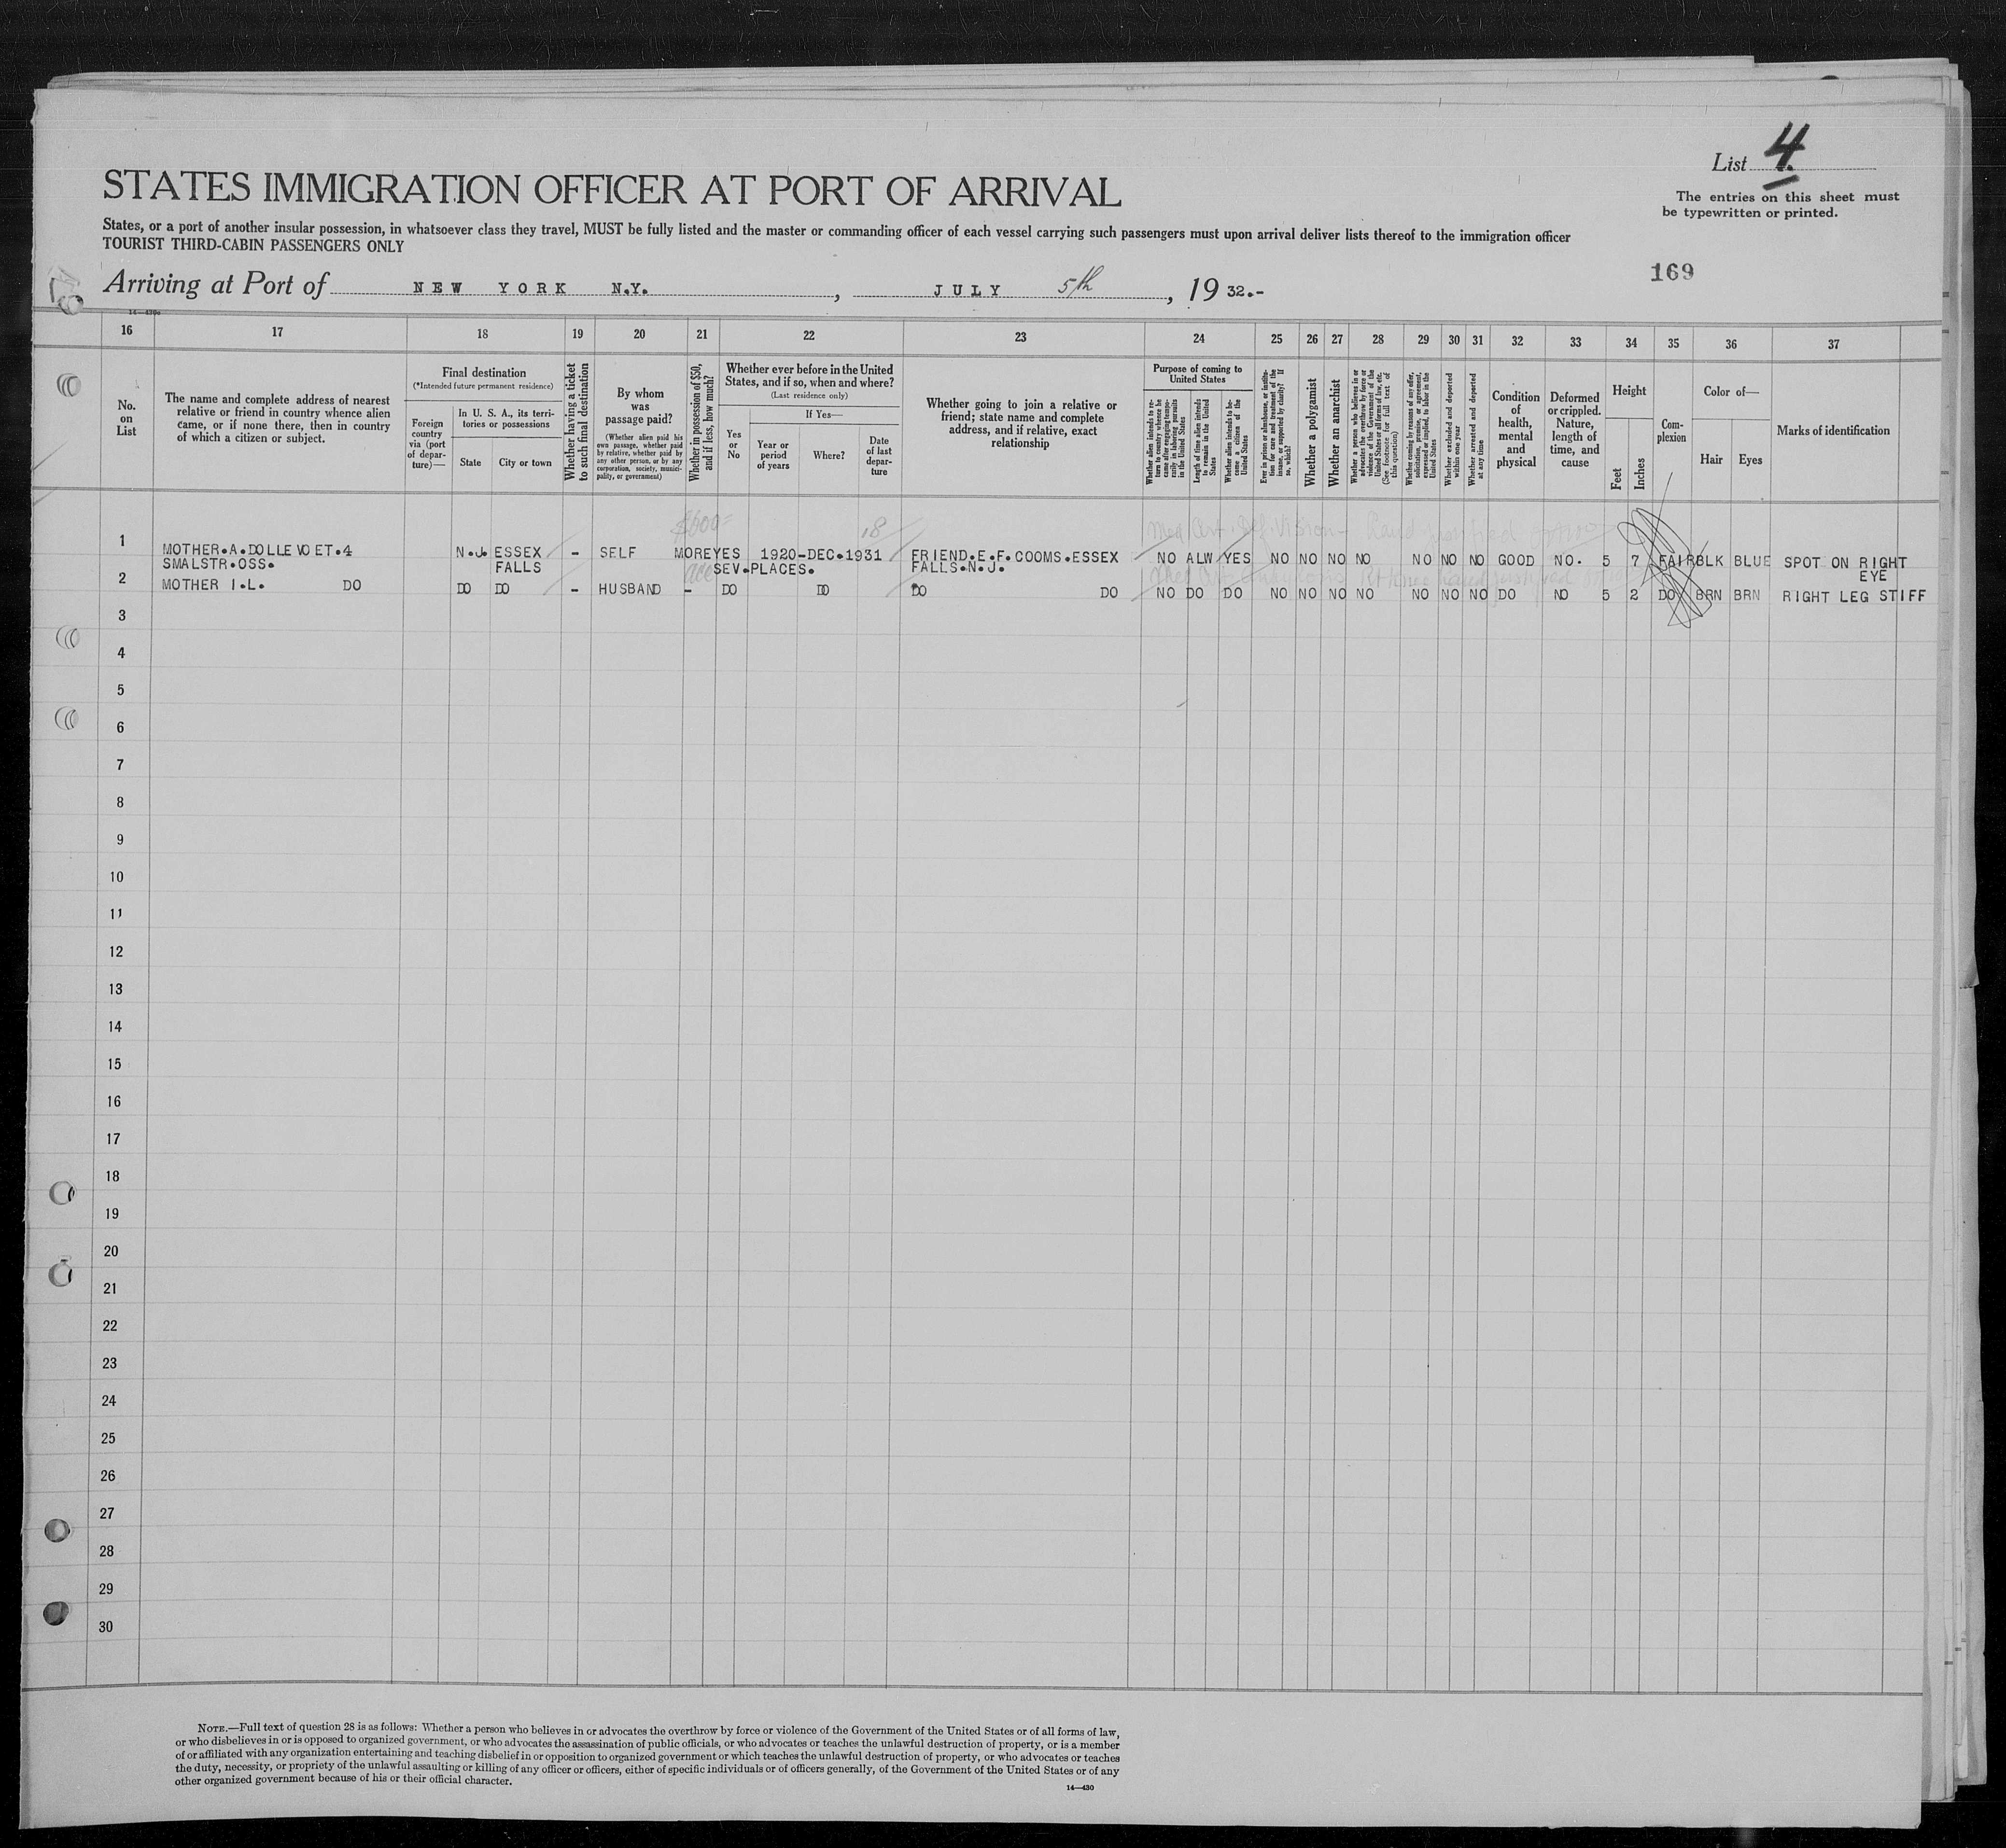 List 4
STATES IMMIGRATION OFFICER AT PORT OF ARRIVAL
The entries on this sheet must
be typewritten or printed.
States, or a port of another insular possession, in whatsoever class they travel, MUST be fully listed and the master or commanding officer of each vessel carrying such passengers must upon arrival deliver lists thereof to the immigration officer
TOURIST THIRD-CABIN PASSENGERS ONLY
169
Arriving at Port of NEW YORK N.Y. , JULY 5th , 19 32.-
16 17 18 19 20 21 22 23 24 25 26 27 28 29 30 31 32 33 34 35 36 37
No.
on
List
The name and complete address of nearest
relative or friend in country whence alien
came, or if none there, then in country
of which a citizen or subject.
Final destination
(*Intended future permanent residence)
Foreign
country
via (port
of depar-
ture)—
In U. S. A., its terri-
tories or possessions
State
City or town
Whether having a ticket
to such final destination
By whom
was
passage paid?
(Whether alien paid his
own passage, whether paid
by relative, whether paid by
any other person, or by any
corporation, society, munici-
pality, or government)
Whether in possession of $50,
and if less, how much?
Whether ever before in the United
States, and if so, when and where?
(Last residence only)
Yes
or
No
If Yes—
Year or
period
of years
Where?
Date
of last
depar-
ture
Whether going to join a relative or
friend; state name and complete
address, and if relative, exact
relationship
Purpose of coming to
United States
Whether alien intends to re-
turn to country whence he
came after engaging tempo-
rarily in laboring pursuits
in the United States
Length of time alien intends
to remain in the United
States
Whether alien intends to be-
come a citizen of the
United States
Ever in prison or almshouse, or institu-
tion for care and treatment of the
insane, or supported by charity? If
so, which?
Whether a polygamist
Whether an anarchist
Whether a person who believes in or
advocates the overthrow by force or
violence of the Government of the
United States or all forms of law, etc.
(See footnote for full text of
this question)
Whether coming by reasons of any offer,
solicitation, promise, or agreement,
expressed or implied, to labor in the
United States
Whether excluded and deported
within one year
Whether arrested and deported
at any time
Condition
of
health,
mental
and
physical
Deformed
or crippled.
Nature,
length of
time, and
cause
Height
Feet
Inches
Com-
plexion
Color of—
Hair
Eyes
Marks of identification
$600= 18
1 MOTHER.A.DOLLEVOET.4 N.J. ESSEX - SELF MORE YES 1920-DEC.1931 FRIEND.E.F.COOMS.ESSEX NO ALW YES NO NO NO NO NO NO NO GOOD NO. 5 7 FAIR BLK BLUE SPOT ON RIGHT
SMALSTR.OSS. FALLS SEV.PLACES. FALLS.N.J. EYE
2 MOTHER I.L. DO DO DO - HUSBAND - DO DO DO DO NO DO DO NO NO NO NO NO NO NO DO NO 5 2 DO BRN BRN RIGHT LEG STIFF
3
4
5
6
7
8
9
10
11
12
13
14
15
16
17
18
19
20
21
22
23
24
25
26
27
28
29
30
NOTE.—Full text of question 28 is as follows: Whether a person who believes in or advocates the overthrow by force or violence of the Government of the United States or of all forms of law,
or who disbelieves in or is opposed to organized government, or who advocates the assassination of public officials, or who advocates or teaches the unlawful destruction of property, or is a member
of or affiliated with any organization entertaining and teaching disbelief in or opposition to organized government or which teaches the unlawful destruction of property, or who advocates or teaches
the duty, necessity, or propriety of the unlawful assaulting or killing of any officer or officers, either of specific individuals or of officers generally, of the Government of the United States or of any
other organized government because of his or their official character.
14—430